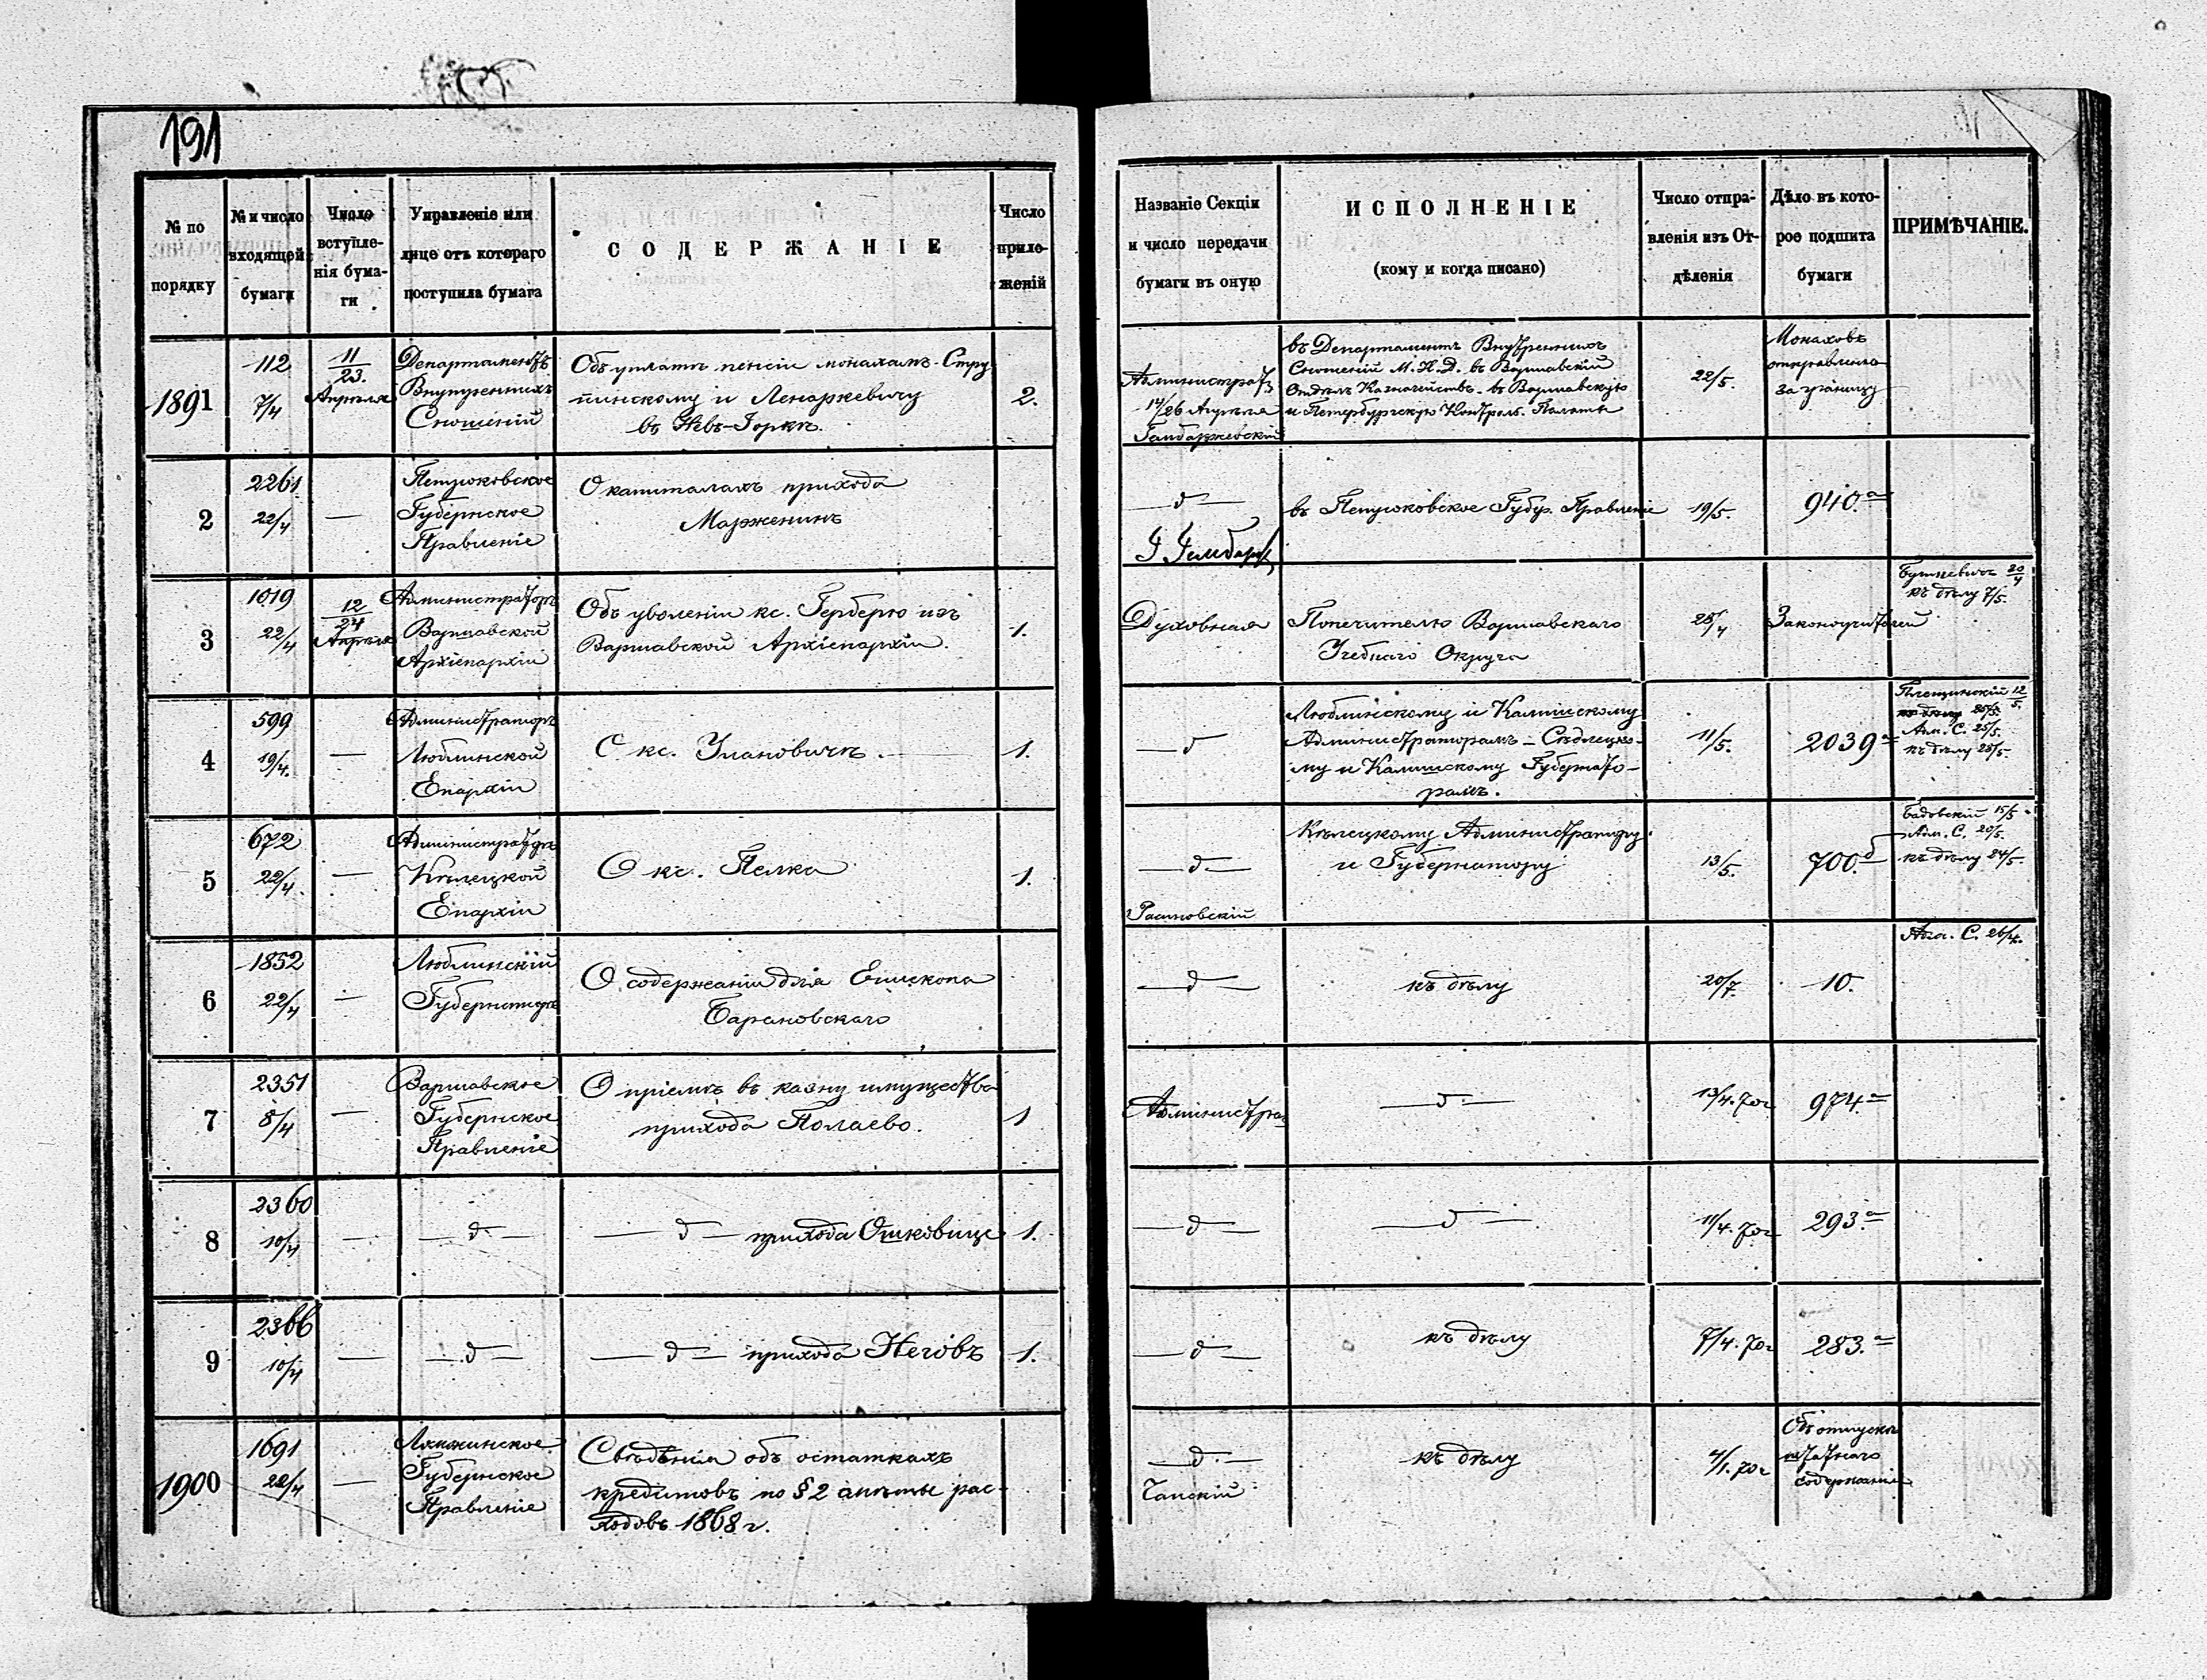 191
№ по
порядку
№ и число
входящей
бумаги
Число
вступле-
нія бума-
ги
Управленіе или
лице отъ котораго
поступила бумага
СОДЕРЖАНІЕ
Число
прило-
женій
Названіе Секціи
и число передачи
бумаги въ оную
ИСПОЛНЕНІЕ
(кому и когда писано)
Число отпра-
вленія изъ От-
дѣленія
Дѣло въ кото-
рое подшита
бумаги
ПРИМѢЧАНІЕ.
1891
112
7/4
11/23.
Апрѣля
Департаментъ
Внутреннихъ
Сношеній
Объ уплатѣ пенсіи монахамъ Стру
пинскому и Ленаркевичу
въ Невъ-Іоркѣ.
2.
Администрат.
14/26 Апрѣля
въ Департаментъ Внутреннихъ
Сношеній М.И.Д. въ Варшавскій
Отдѣлъ Казначействъ. въ Варшавскую
и Петербургскую Контрол. Палаты
22/5.
Монаховъ
отправлено
за границу
2
2261
22/4
—
Петроковское
Губернское
Правленіе
О капиталахъ прихода
Марженинъ
— д —
въ Петроковское Губер. Правленіе
19/5.
940.а
3
1019
22/4
12/24
Апрѣля
Администраторъ
Варшавской
Архіепархіи
Объ уволеніи кс. Герберю изъ
Варшавской Архіепархіи.
1.
Духовная
Попечителю Варшавскаго
Учебнаго Округа
28/4
Законоучителей
Буткевичъ 20/4
къ дѣлу 7/5.
4
599
19/4.
—
Администраторъ
Люблинской
Епархіи
О кс. Улановичѣ.
1.
— д
Люблинскому и Калишскому
Администраторамъ – Сѣдлецко-
му и Калишскому Губернато-
рамъ.
11/5.
2039а
12/5.
Адм. С. 25/5.
къ дѣлу 28/5.
5
672
22/4.
—
Администраторъ
Кѣлецкой
Епархіи
О кс. Пелка
1.
— д —
Кѣлецкому Администратору
и Губернатору
13/5.
700.б
Бадовскій 15/5
Адм. С. 20/5.
къ дѣлу 24/5.
6
1852
22/4
—
Люблинскій
Губернаторъ
О содержаніи для Епископа
Барановскаго
— д —
къ дѣлу
20/7.
10.
7
2351
8/4
—
Варшавское
Губернское
Правленіе
О пріемѣ въ казну имущества
прихода Полаево.
1
Администрац
— д —
13/4. 70г
974.а
8
2360
10/4
—
— д —
— д — прихода Ошковице
1.
— д —
— д —
11/4. 70г
293.а
9
2366
10/4
—
— д —
— д — прихода Неговъ
1.
— д —
къ дѣлу
7/4. 70г
283.а
1900
1691
22/4
—
Ломжинское
Губернское
Правленіе
Свѣдѣнія объ остаткахъ
кредитовъ по § 2 смѣты рас-
ходовъ 1868 г.
— д —
къ дѣлу
4/1. 70г
Объ отпускѣ
штатнаго
содержанія